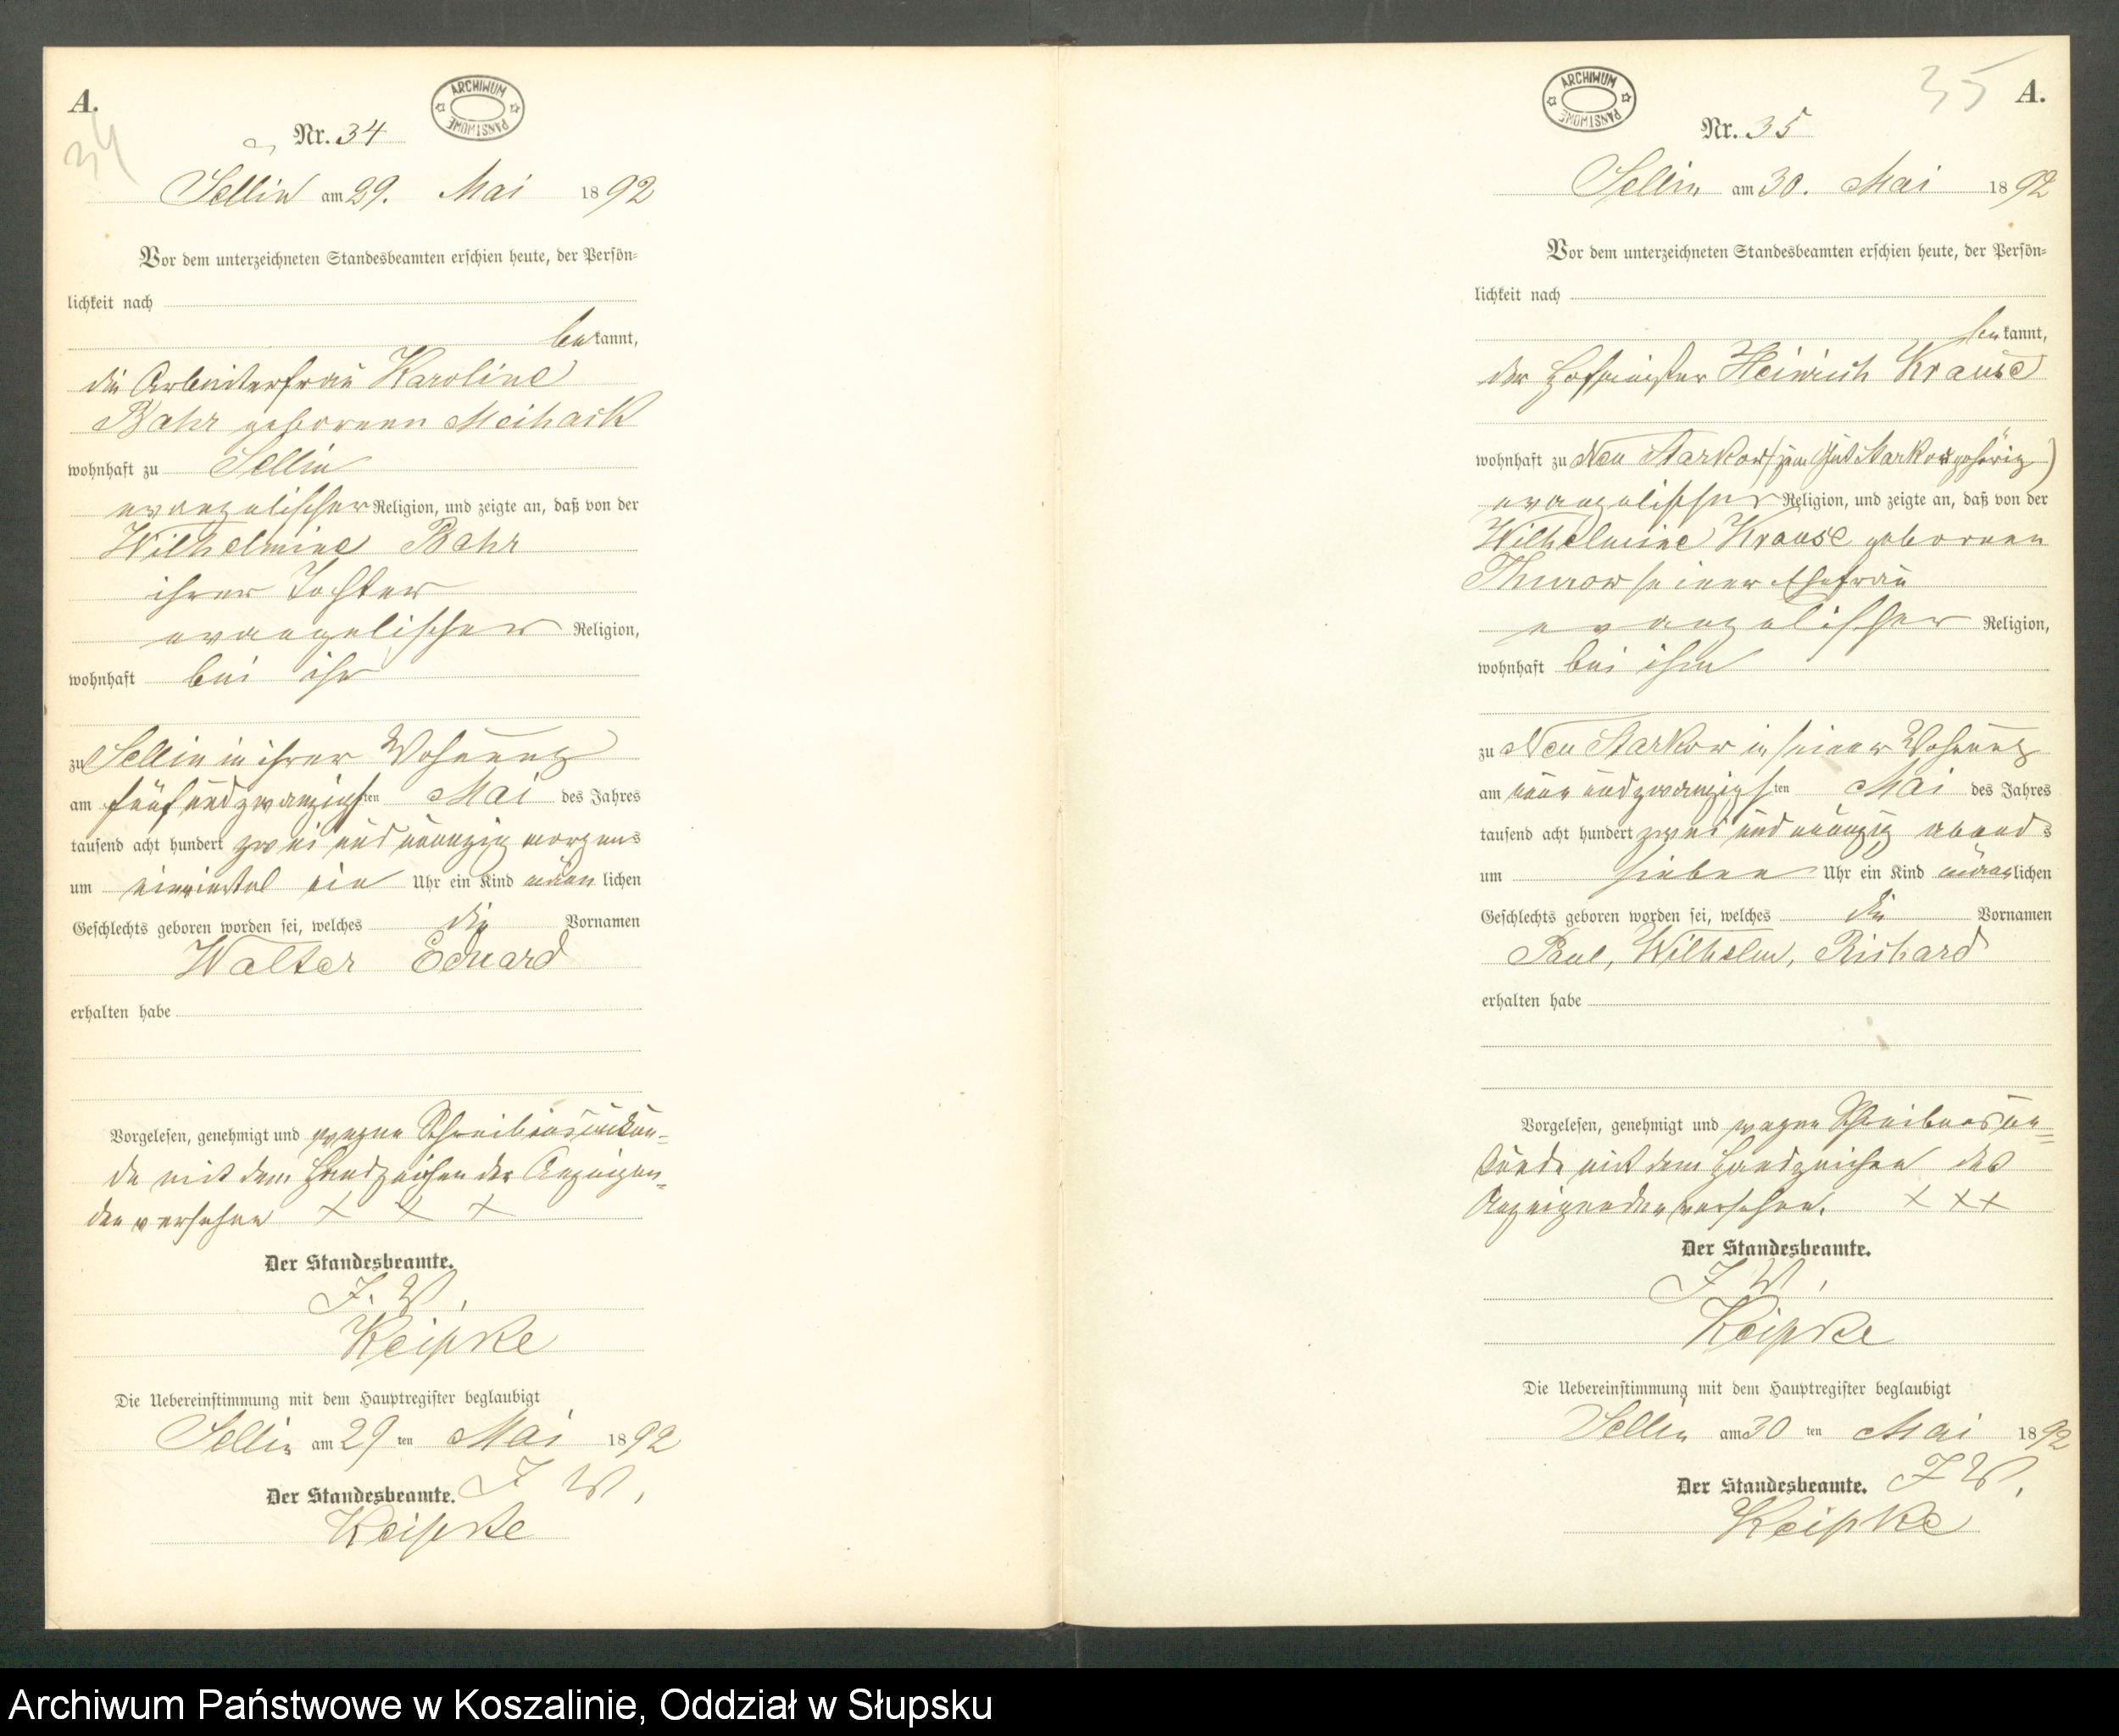 A.
34
ARCHIWUM PAŃSTWOWE
Nr. 34
Sellin am 29. Mai 1892
Vor dem unterzeichneten Standesbeamten erschien heute, der Persön-
lichkeit nach
bekannt,
die Arbeiterfrau Karoline
Bahr geborenen Meihack
wohnhaft zu Sellin
evangelischer Religion, und zeigte an, daß von der
Wilhelmine Bahr
ihrer Tochter
evangelischer Religion,
wohnhaft bei ihr
zu Sellin in ihrer Wohnung
am fünfundzwanzigsten Mai des Jahres
tausend acht hundert zwei und neunzig morgens
um einviertel ein Uhr ein Kind männlichen
Geschlechts geboren worden sei, welches die Vornamen
Walter Eduard
erhalten habe
Vorgelesen, genehmigt und wegen Schreibensunkun-
de mit dem Handzeichen der Anzeigen-
den versehen + + +
Der Standesbeamte.
J. V.
Keipke
Die Uebereinstimmung mit dem Hauptregister beglaubigt
Sellin am 29 ten Mai 1892
Der Standesbeamte. J V.
Keipke
ARCHIWUM PAŃSTWOWE
35
A.
Nr. 35
Sellin am 30. Mai 1892
Vor dem unterzeichneten Standesbeamten erschien heute, der Persön-
lichkeit nach
bekannt,
der Hofmeister Heinrich Krause
wohnhaft zu Neu Starkow (zum Gut Starkow gehörig)
evangelischer Religion, und zeigte an, daß von der
Wilhelmine Krause geborenen
Thurow seiner Ehefrau
evangelischer Religion,
wohnhaft bei ihm
zu Neu Starkow in seiner Wohnung
am neun und zwanzigsten Mai des Jahres
tausend acht hundert zwei und neunzig abends
um sieben Uhr ein Kind männlichen
Geschlechts geboren worden sei, welches die Vornamen
Paul, Wilhelm, Richard
erhalten habe
Vorgelesen, genehmigt und wegen Schreibensun-
kunde mit dem Handzeichen des
Anzeigenden versehen. + + +
Der Standesbeamte.
J V.
Keipke
Die Uebereinstimmung mit dem Hauptregister beglaubigt
Sellin am 30 ten Mai 1892
Der Standesbeamte. J V.
Keipke
Archiwum Państwowe w Koszalinie, Oddział w Słupsku